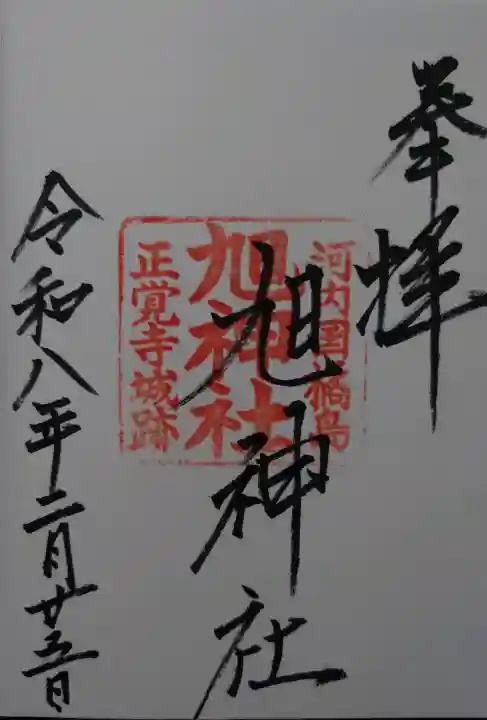 奉拝
河内国橘島
旭神社
正覚寺城跡
旭神社
令和八年二月廿五日